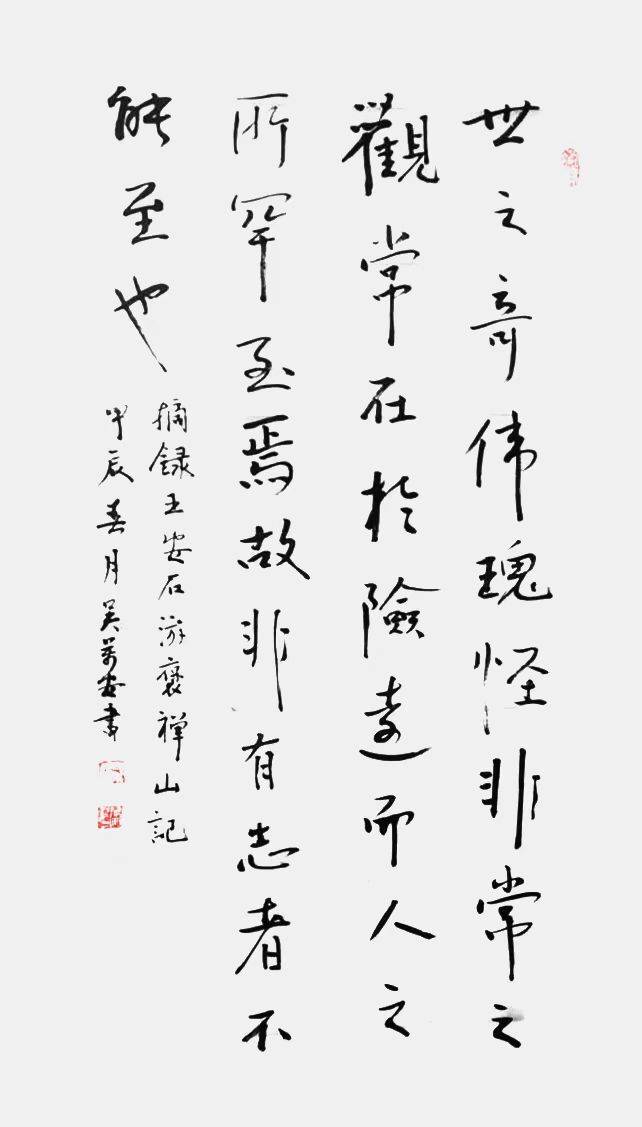 世之奇伟瑰怪非常之
觀常在於險遠而人之
所罕至焉故非有志者不
能至也
摘録王安石游褒禅山記
甲辰春月吴萬安書